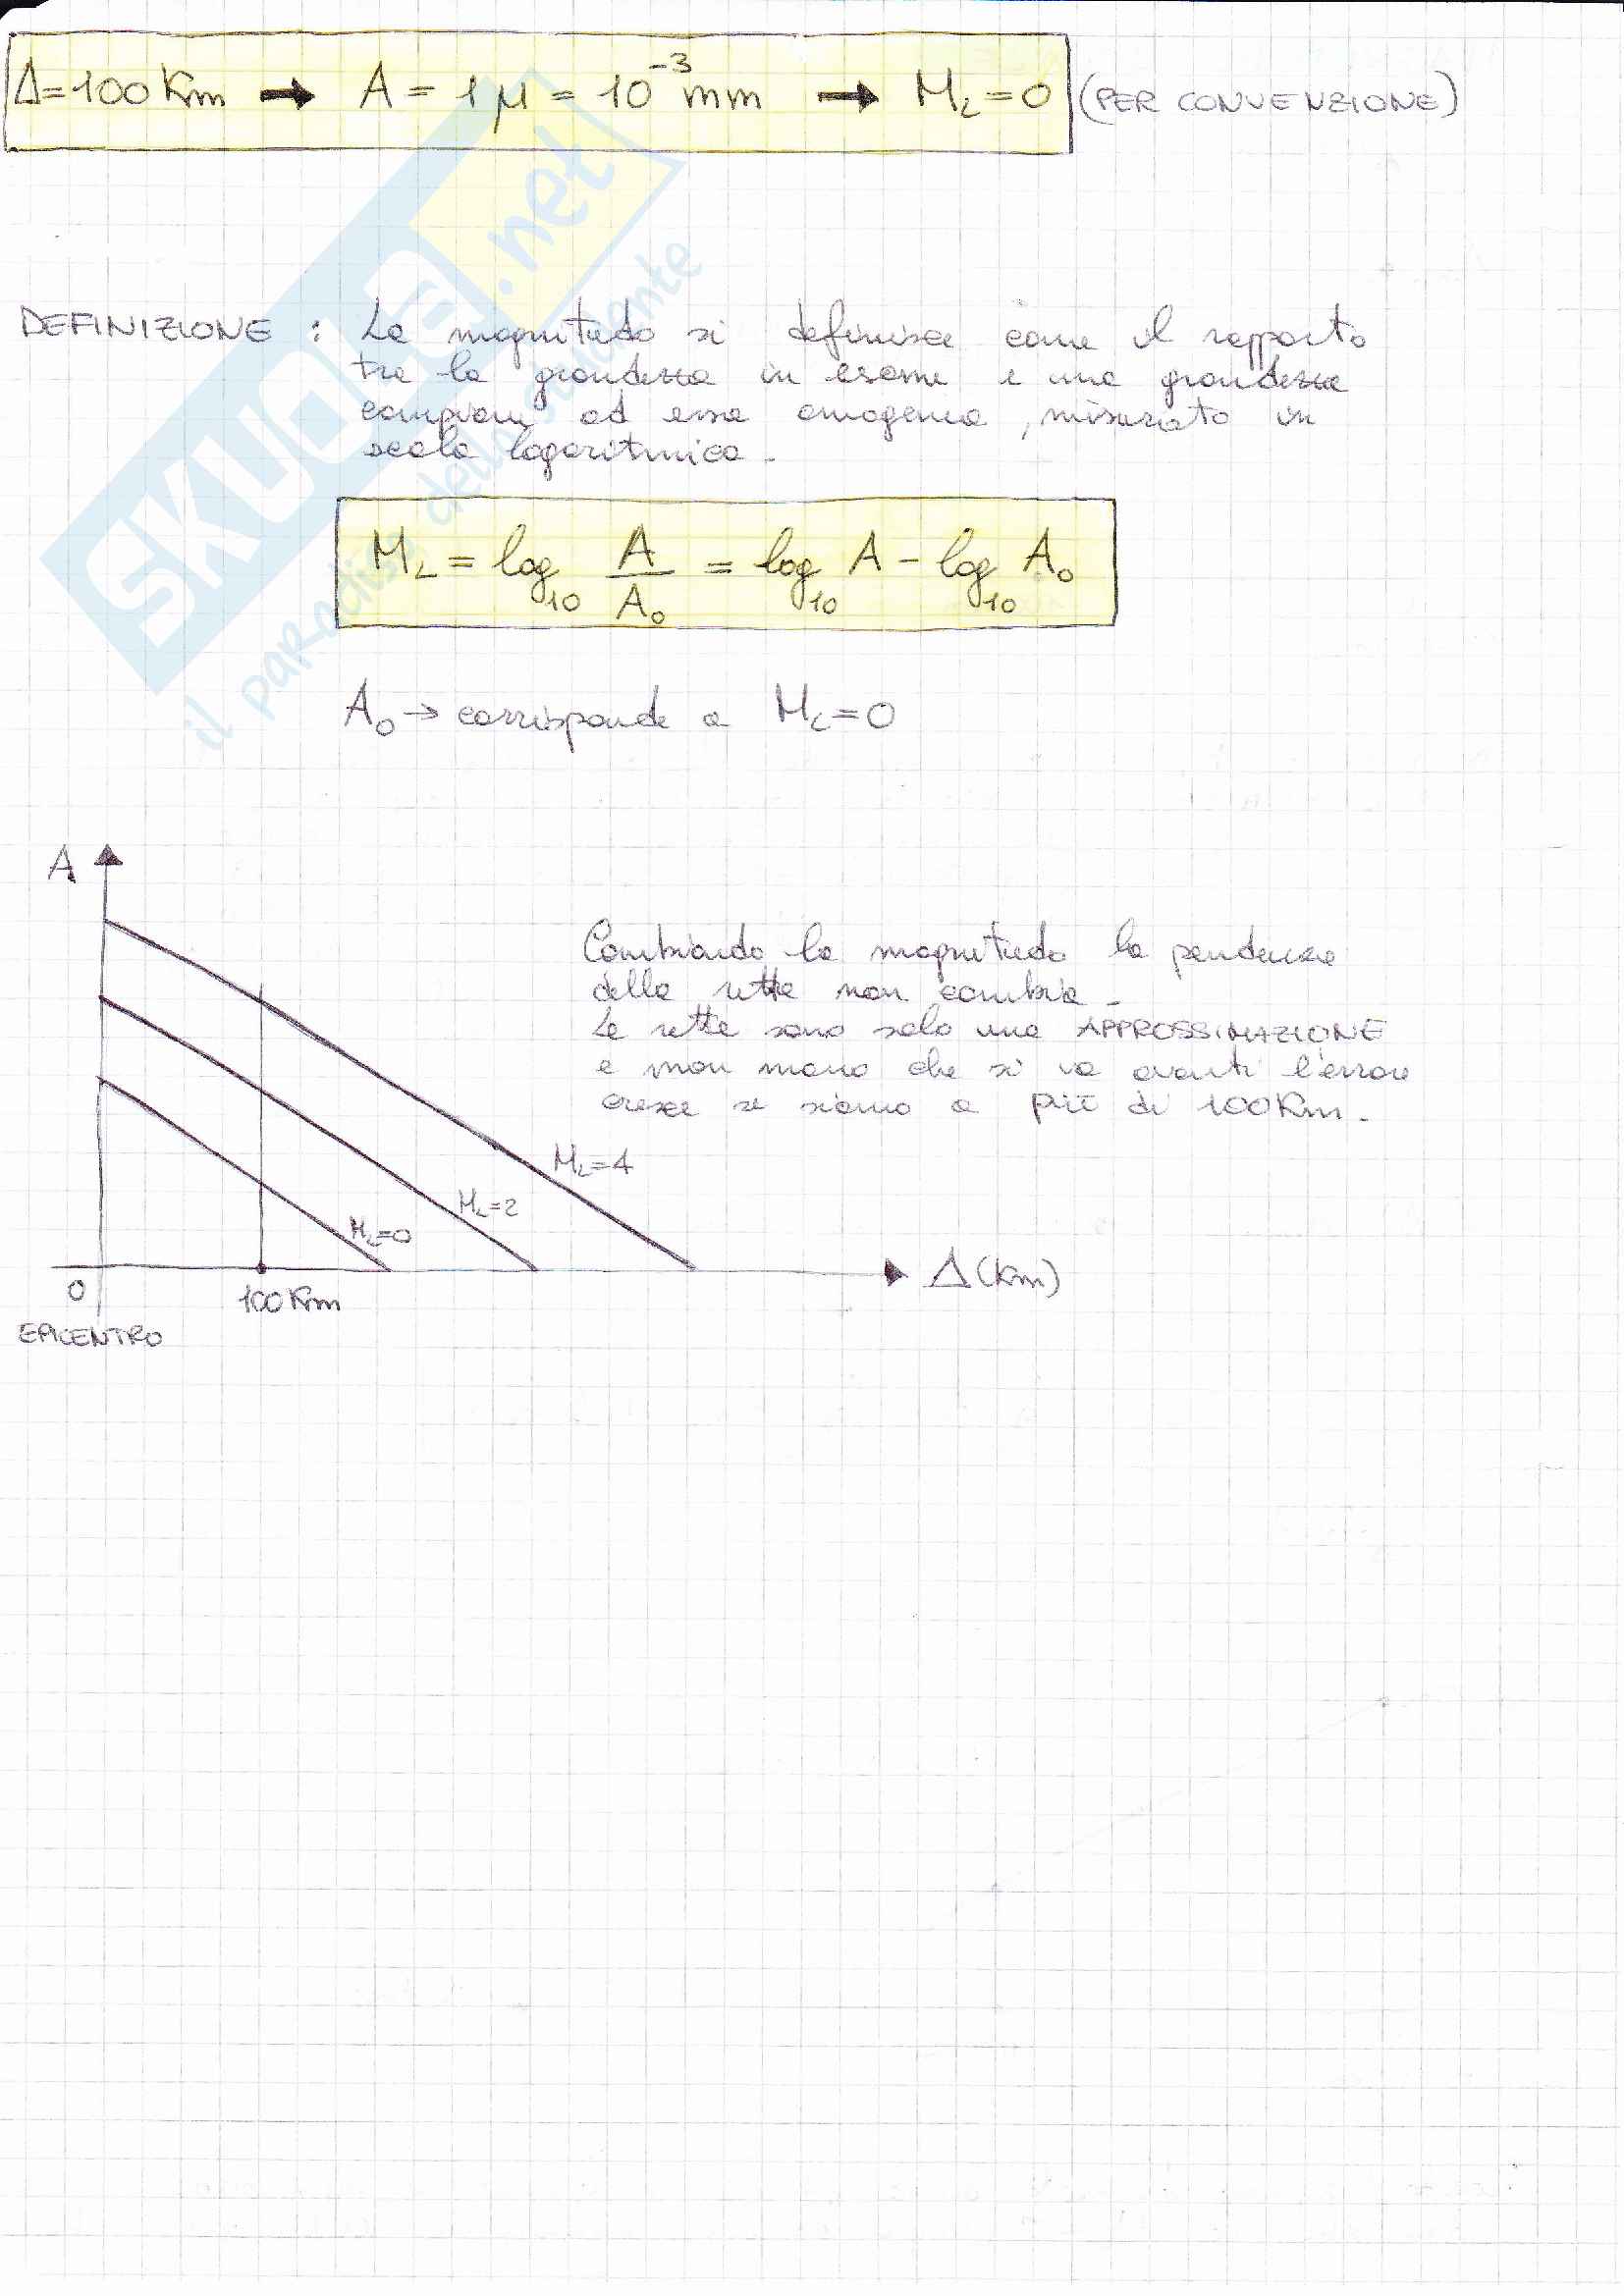 Δ=100 Km → A = 1 μ = 10⁻³ mm → M_L=0 (PER CONVENZIONE)
DEFINIZIONE : La magnitudo si definisce come il rapporto
tra la grandezza in esame e una grandezza
campione ad essa omogenea, misurato in
scala logaritmica.
M_L = log₁₀ A/A₀ = log₁₀ A - log₁₀ A₀
A₀ → corrisponde a M_L=0
A
Cambiando la magnitudo la pendenza
della retta non cambia.
Le rette sono solo una APPROSSIMAZIONE
e man mano che si va avanti l'errore
cresce se siamo a più di 100Km.
M_L=4
M_L=2
M_L=0
0
100Km
Δ(Km)
EPICENTRO
SKUOLA.net
il paradiso dello studente